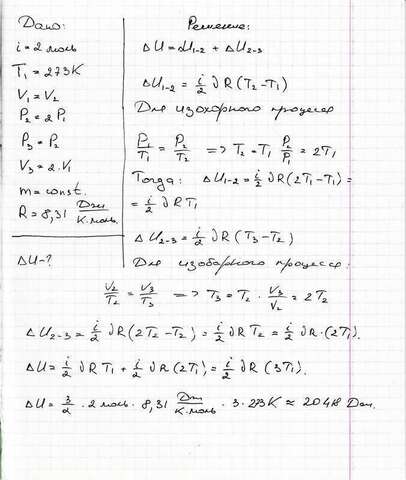 Дано:
i = 2 моль
T₁ = 273K
V₁ = V₂
P₂ = 2 P₁
P₃ = P₂
V₃ = 2·V₁
m = const.
R = 8,31 Дж/К·моль.
ΔU - ?
Решение:
ΔU = U₁₋₂ + ΔU₂₋₃
ΔU₁₋₂ = i/2 ∂R(T₂-T₁)
Для изохорного процесса
P₁/T₁ = P₂/T₂ => T₂ = T₁ P₂/P₁ = 2T₁
Тогда: ΔU₁₋₂ = i/2 ∂R(2T₁-T₁) =
= i/2 ∂R T₁
ΔU₂₋₃ = i/2 ∂R (T₃-T₂)
Для изобарного процесса:
V₂/T₂ = V₃/T₃ => T₃ = T₂ · V₃/V₂ = 2T₂
ΔU₂₋₃ = i/2 ∂R(2T₂-T₂) = i/2 ∂R T₂ = i/2 ∂R·(2T₁).
ΔU = i/2 ∂R T₁ + i/2 ∂R(2T₁) = i/2 ∂R (3T₁)
ΔU = 3/2 · 2 моль · 8,31 Дж/К·моль · 3·273K ≈ 20418 Дж.